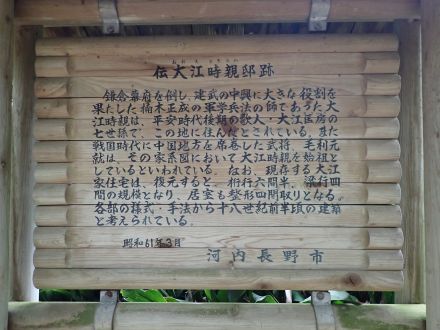 伝大江時親邸跡
鎌倉幕府を倒し、建武の中興に大きな役割を
果たした楠木正成の軍学兵法の師であった大
江時親は、平安時代後期の歌人・大江匡房の
七世孫で、この地に住んだとされている。また
戦国時代に中国地方を席巻した武将、毛利元
就は、その家系図において大江時親を始祖と
しているといわれている。なお、現存する大江
家住宅は、復元すると。桁行六間半、梁行四
間の規模となり、居室も整形四間取りとなる。
各部の様式・手法から十八世紀前半頃の建築
と考えられている。
昭和61年3月
河内長野市